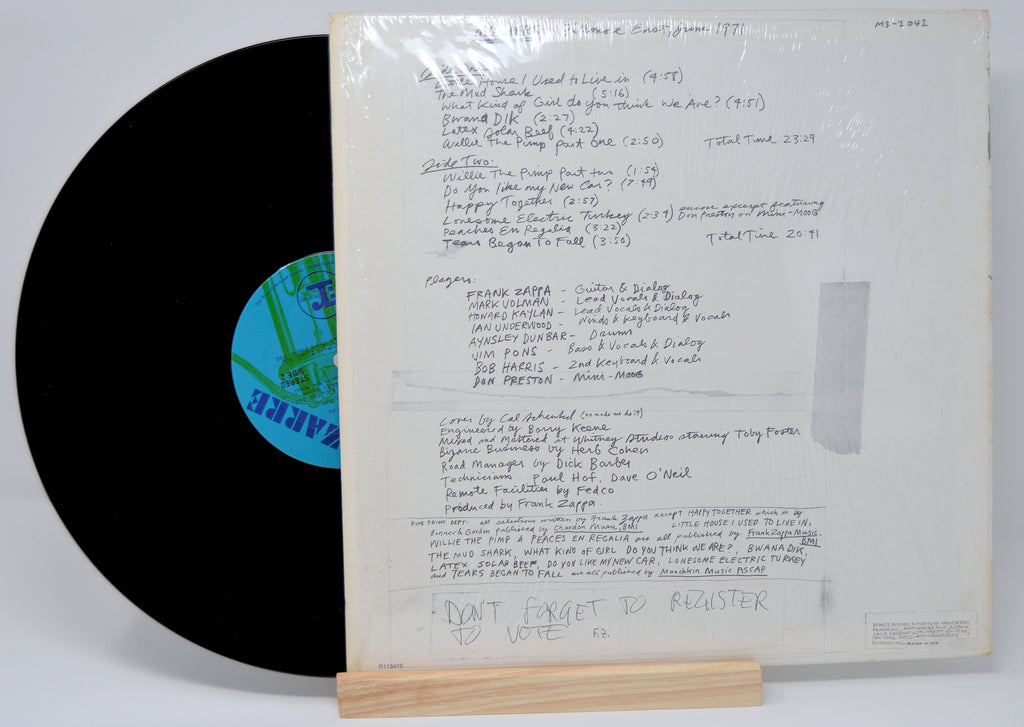 Fillmore East, June 1971
MS-2042
Side One:
Little House I Used to Live in (4:58)
The Mud Shark (5:16)
What Kind of Girl do you think We Are? (4:51)
Bwana DIK (2:27)
Latex Solar Beef (4:22)
Willie The Pimp Part One (2:50) Total Time 23:29
Side Two:
Willie The Pimp Part two (1:54)
Do You like my New Car? (7:49)
Happy Together (2:57)
Lonesome Electric Turkey (2:34) encore excerpt featuring
Don Preston on Mini-MOOG
Peaches En Regalia (3:22)
Tears Began To Fall (3:50) Total Time 20:41
Players:
FRANK ZAPPA - Guitar & Dialog
MARK VOLMAN - Lead Vocals & Dialog
HOWARD KAYLAN - Lead Vocals & Dialog
IAN UNDERWOOD - Winds & Keyboard & Vocals
AYNSLEY DUNBAR - Drums
JIM PONS - Bass & Vocals & Dialog
BOB HARRIS - 2nd Keyboard & Vocals
DON PRESTON - Mini-MOOG
Cover by Cal Schenkel (he made me do it)
Engineered by Barry Keene
Mixed and Mastered at Whitney Studios starring Toby Foster
Bizarre Business by Herb Cohen
Road Manager by Dick Barber
Technicians Paul Hof, Dave O'Neil
Remote Facilities by Fedco
Produced by Frank Zappa.
FINE PRINT DEPT: all selections written by Frank Zappa except HAPPY TOGETHER which is by
Bonner & Gordon published by Chardon Music, BMI LITTLE HOUSE I USED TO LIVE IN,
WILLIE THE PIMP & PEACES EN REGALIA are all published by Frank Zappa Music,
BMI
THE MUD SHARK, WHAT KIND OF GIRL DO YOU THINK WE ARE?, BWANA DIK,
LATEX SOLAR BEEF, DO YOU LIKE MY NEW CAR, LONESOME ELECTRIC TURKEY
and TEARS BEGAN TO FALL are all published by Munchkin Music ASCAP
DON'T FORGET TO REGISTER
TO VOTE F.Z.
R118410
STEREO
SIDE 2
ZARRE